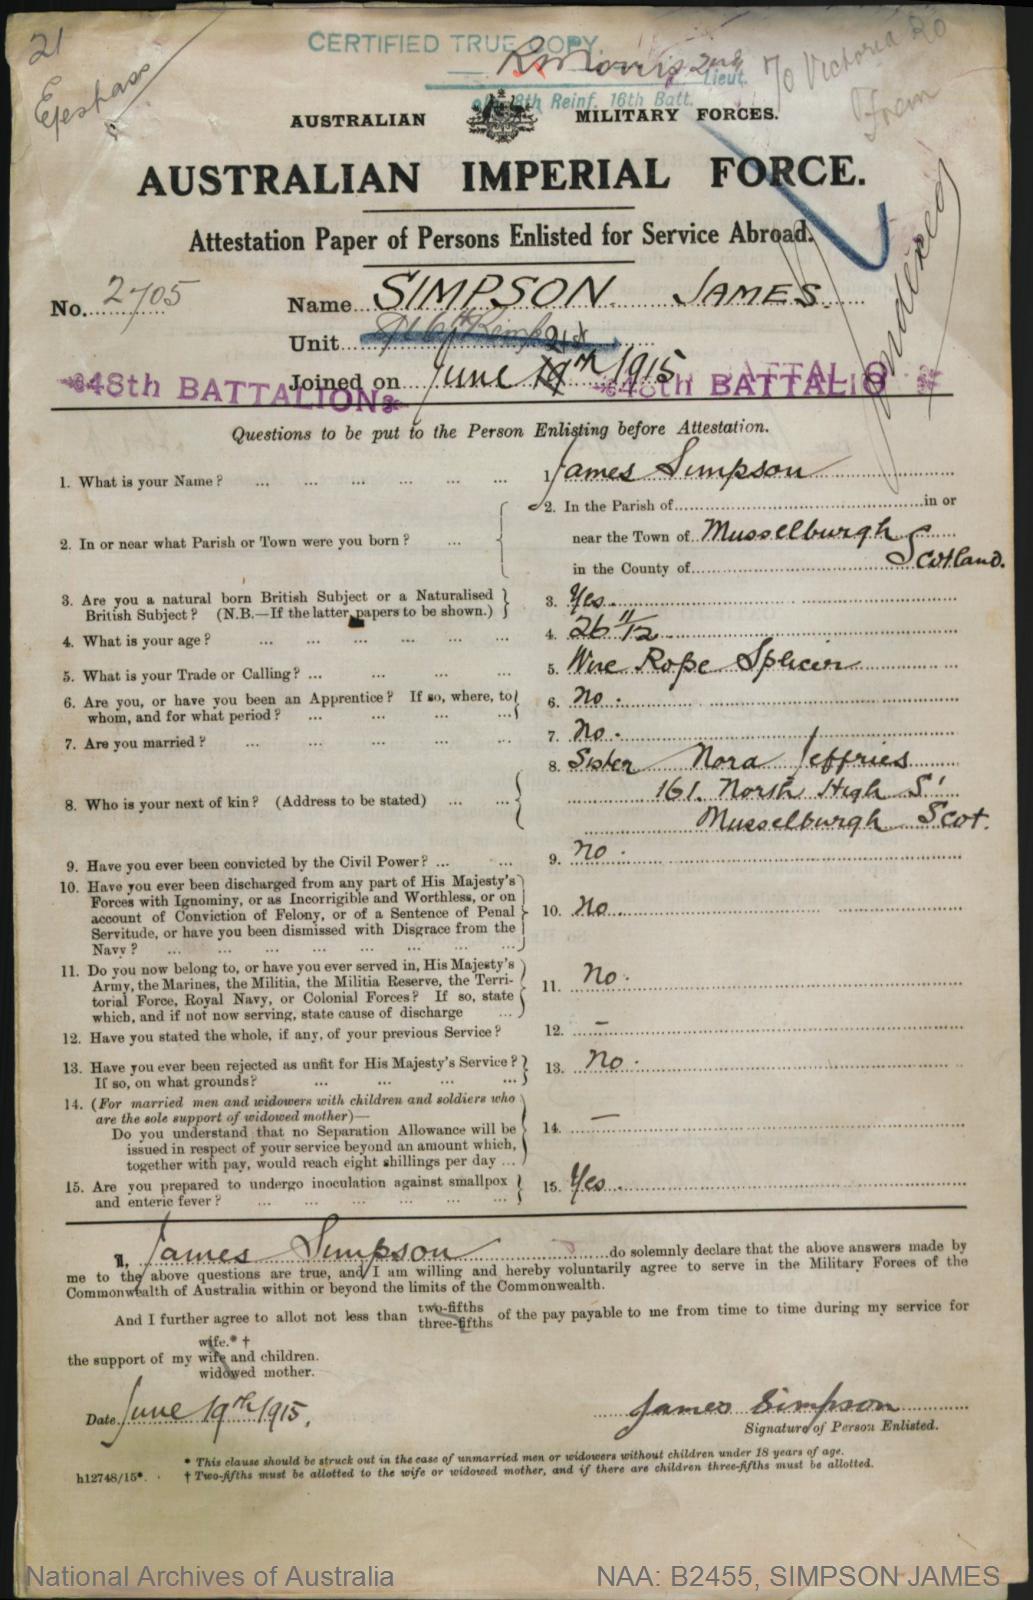 21
CERTIFIED TRUE COPY.
2nd Lieut.
8th Reinf. 16th Batt.
70 Victoria Rd
AUSTRALIAN MILITARY FORCES.
AUSTRALIAN IMPERIAL FORCE.
Indexed
Attestation Paper of Persons Enlisted for Service Abroad.
No. 2705
Name SIMPSON JAMES
Unit
21st
Joined on June 19th 1915
48th BATTALION
48th BATTALIO
Questions to be put to the Person Enlisting before Attestation.
1. What is your Name? ... ... ... ... ... ... 1. James Simpson
2. In or near what Parish or Town were you born? ... 2. In the Parish of in or
near the Town of Musselburgh
in the County of Scotland.
3. Are you a natural born British Subject or a Naturalised
British Subject? (N.B.—If the latter, papers to be shown.) 3. Yes.
4. What is your age? ... ... ... ... ... ... 4. 26 11/12
5. What is your Trade or Calling? ... ... ... ... 5. Wire Rope Splicer
6. Are you, or have you been an Apprentice? If so, where, to
whom, and for what period? ... ... ... ... 6. No.
7. Are you married? ... ... ... ... ... 7. No.
8. Who is your next of kin? (Address to be stated) ... ... 8. Sister Nora Jeffries
161. North High St
Musselburgh Scot.
9. Have you ever been convicted by the Civil Power? ... ... 9. No.
10. Have you ever been discharged from any part of His Majesty's
Forces with Ignominy, or as Incorrigible and Worthless, or on
account of Conviction of Felony, or of a Sentence of Penal
Servitude, or have you been dismissed with Disgrace from the
Navy? ... ... ... ... ... ... ... 10. No.
11. Do you now belong to, or have you ever served in, His Majesty's
Army, the Marines, the Militia, the Militia Reserve, the Terri-
torial Force, Royal Navy, or Colonial Forces? If so, state
which, and if not now serving, state cause of discharge ... 11. No.
12. Have you stated the whole, if any, of your previous Service? 12. –
13. Have you ever been rejected as unfit for His Majesty's Service?
If so, on what grounds? ... ... ... ... 13. No.
14. (For married men and widowers with children and soldiers who
are the sole support of widowed mother)—
Do you understand that no Separation Allowance will be
issued in respect of your service beyond an amount which,
together with pay, would reach eight shillings per day ... 14. –
15. Are you prepared to undergo inoculation against smallpox
and enteric fever? ... ... ... ... ... ... 15. Yes.
I, James Simpson do solemnly declare that the above answers made by
me to the above questions are true, and I am willing and hereby voluntarily agree to serve in the Military Forces of the
Commonwealth of Australia within or beyond the limits of the Commonwealth.
And I further agree to allot not less than two-fifths three-fifths of the pay payable to me from time to time during my service for
wife.*†
the support of my wife and children.
widowed mother.
Date June 19th 1915.
James Simpson
Signature of Person Enlisted.
* This clause should be struck out in the case of unmarried men or widowers without children under 18 years of age.
h12748/15*. † Two-fifths must be allotted to the wife or widowed mother, and if there are children three-fifths must be allotted.
National Archives of Australia
NAA: B2455, SIMPSON JAMES